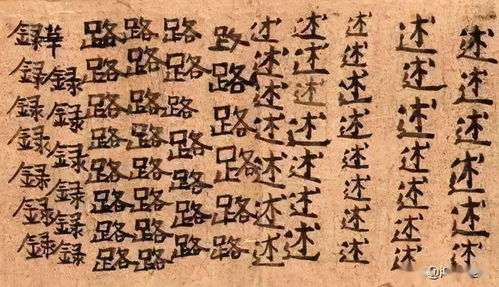 述述述述述述
述述述述述述述
述述述述述述述述述
述述述述述述述述
述述述述述述述
路路路路路路
路路路路路路路
路路路路路路路路
路路路路路路路路
録録録録録録
録録録録録録録